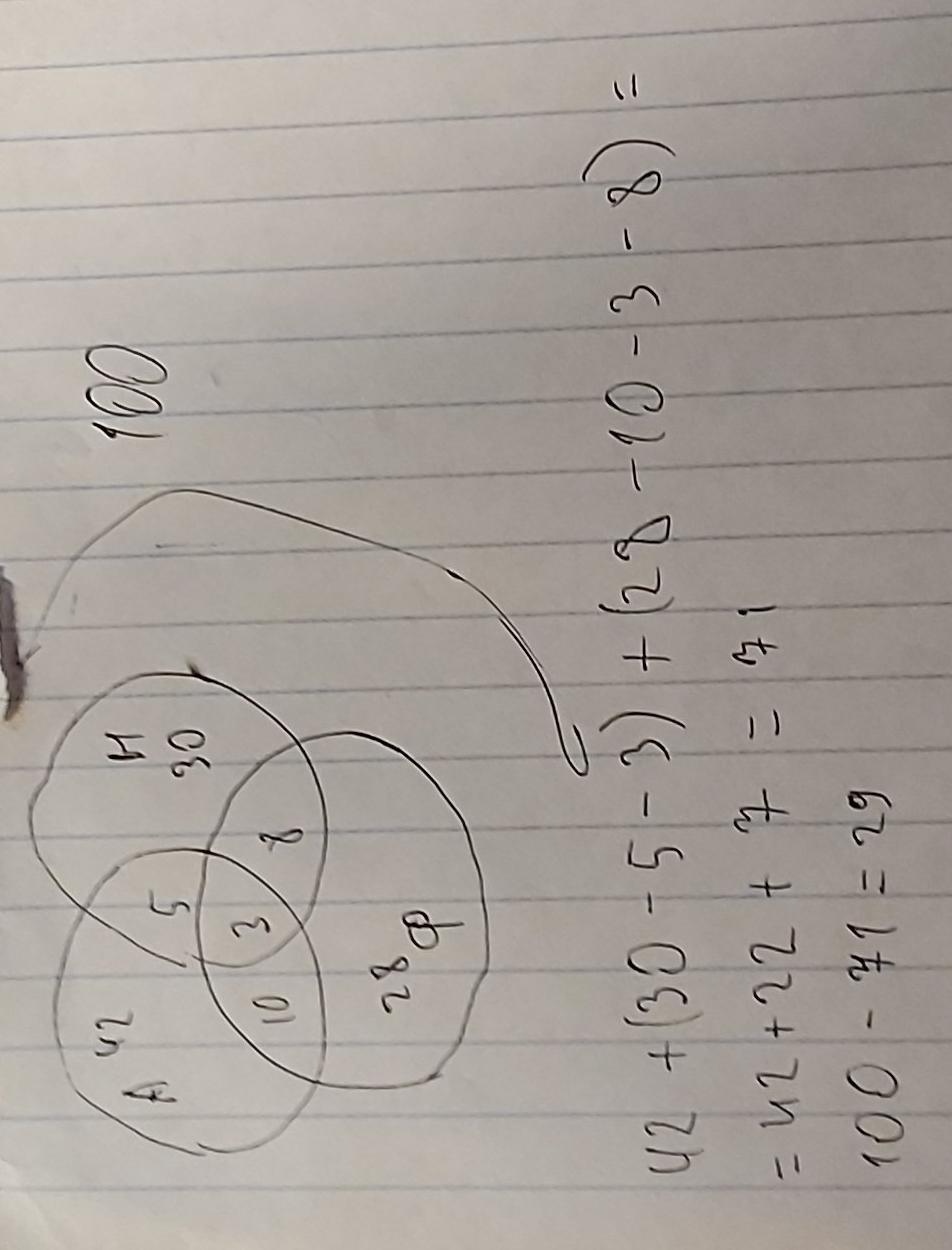 100
А 42
5
Н
30
10
3
8
28
Ф
42 + (30 - 5 - 3) + (28 - 10 - 3 - 8) =
= 42 + 22 + 7 = 71
100 - 71 = 29